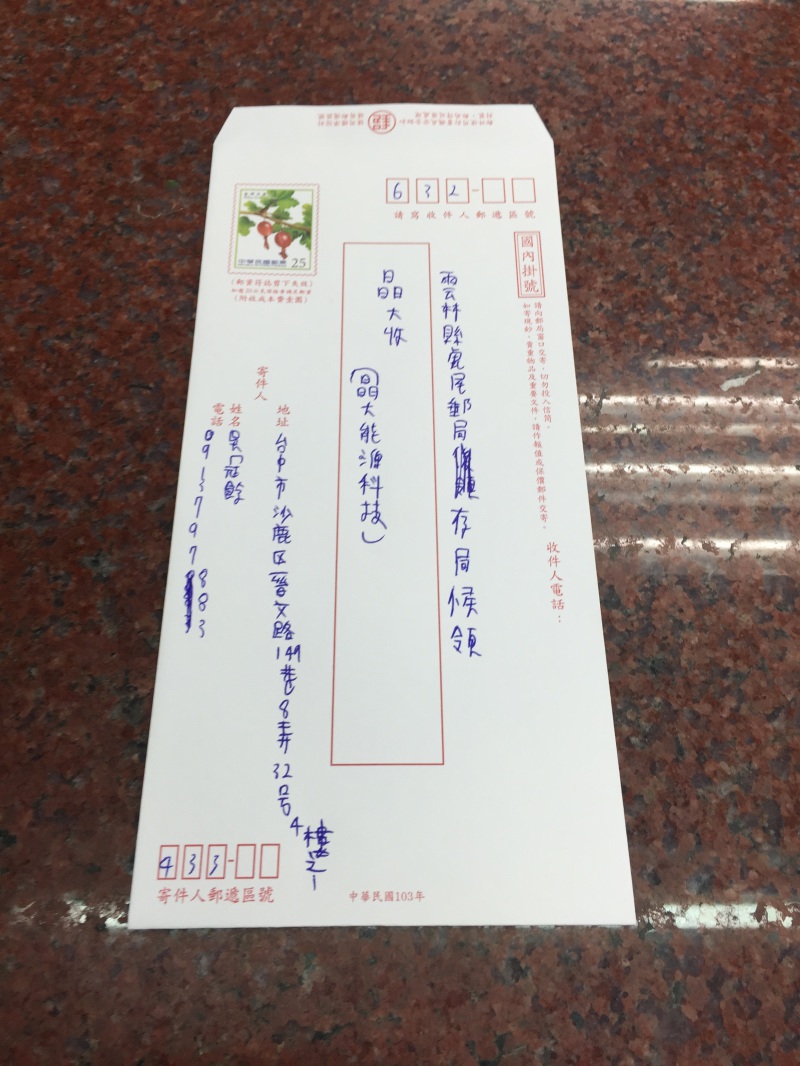 632
請寫收件人郵遞區號
國內掛號
請向郵局窗口交寄,切勿投入信筒。
如寄現鈔、貴重物品及重要文件,請作報值或保價郵件交寄。
收件人電話:
雲林縣虎尾郵局存局候領
晶大收
(晶大能源科技)
中華民國郵票
25
(郵資符誌剪下失效)
(附收成本費壹圓)
寄件人
地址
台中市沙鹿区晉文路149巷8弄32号4樓之1
姓名
吳冠餘
電話
0913797883
433
寄件人郵遞區號
中華民國103年